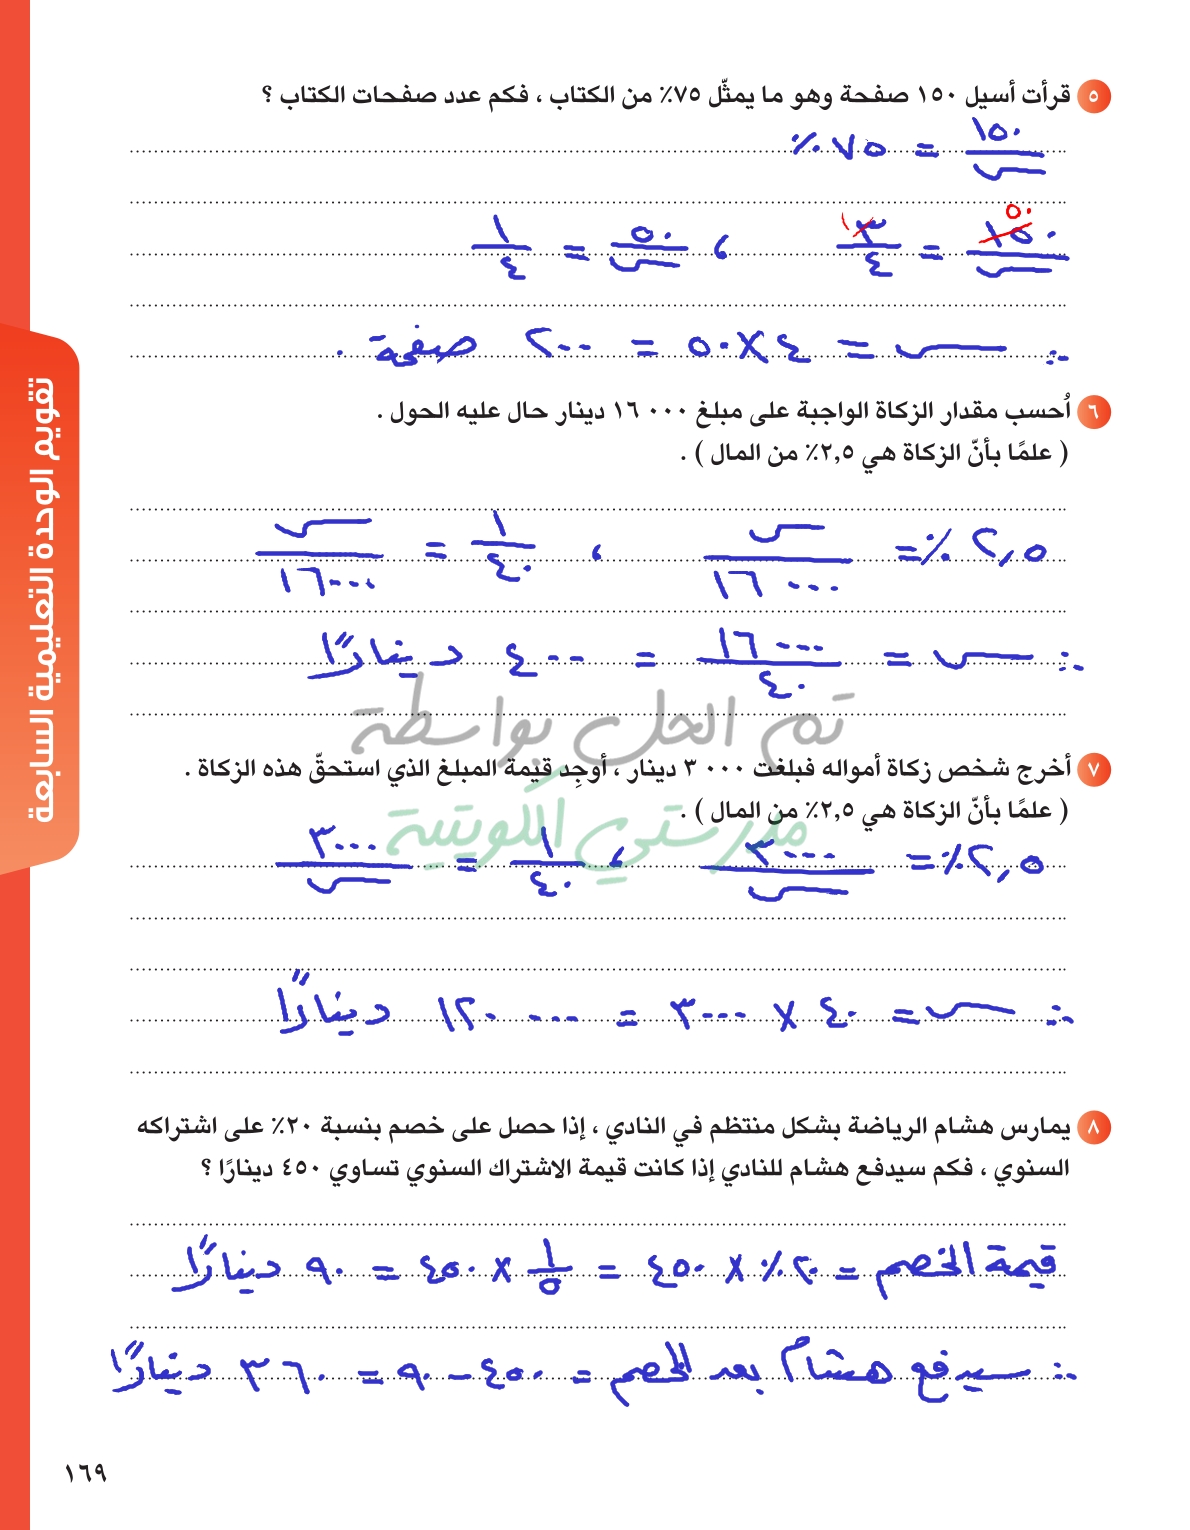 ٥ قرأت أسيل ١٥٠ صفحة وهو ما يمثّل ٧٥٪ من الكتاب ، فكم عدد صفحات الكتاب ؟
١٥٠/س = ٧٥٪
١٥٠/س = ٣/٤ ، ٥٠/س = ١/٤
٥٠ ١
∴ س = ٤ × ٥٠ = ٢٠٠ صفحة .
٦ اُحسب مقدار الزكاة الواجبة على مبلغ ٠٠٠ ١٦ دينار حال عليه الحول .
( علمًا بأنّ الزكاة هي ٢,٥٪ من المال ) .
٢,٥٪ = س/١٦٠٠٠ ، ١/٤٠ = س/١٦٠٠٠
∴ س = ١٦٠٠٠/٤٠ = ٤٠٠ دينارًا
تم الحل بواسطة
٧ أخرج شخص زكاة أمواله فبلغت ٠٠٠ ٣ دينار ، أوجِد قيمة المبلغ الذي استحقّ هذه الزكاة .
( علمًا بأنّ الزكاة هي ٢,٥٪ من المال ) .
مدرستي الكويتية
٢,٥٪ = ٣٠٠٠/س ، ١/٤٠ = ٣٠٠٠/س
∴ س = ٤٠ × ٣٠٠٠ = ١٢٠٠٠٠ دينارًا
٨ يمارس هشام الرياضة بشكل منتظم في النادي ، إذا حصل على خصم بنسبة ٢٠٪ على اشتراكه
السنوي ، فكم سيدفع هشام للنادي إذا كانت قيمة الاشتراك السنوي تساوي ٤٥٠ دينارًا ؟
قيمة الخصم = ٢٠٪ × ٤٥٠ = ١/٥ × ٤٥٠ = ٩٠ دينارًا
∴ سيدفع هشام بعد الخصم = ٤٥٠ − ٩٠ = ٣٦٠ دينارًا
تقويم الوحدة التعليمية السابعة
١٦٩